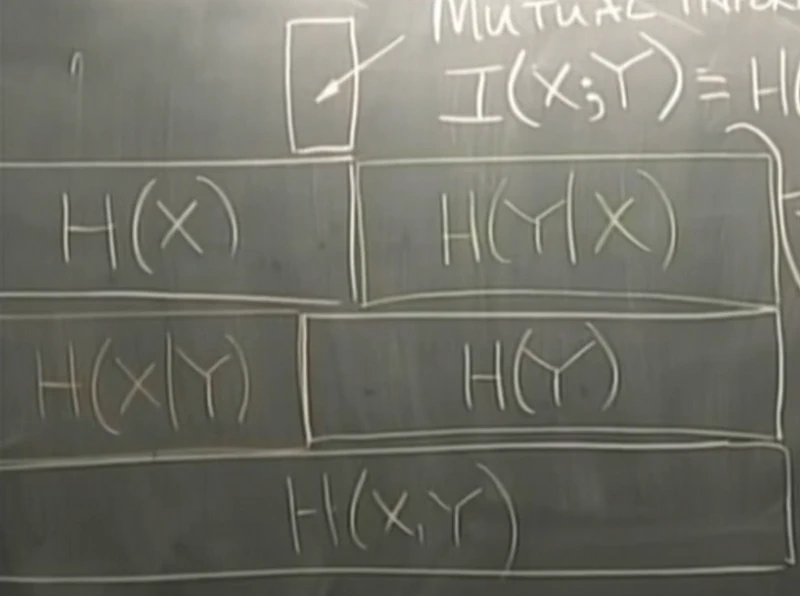 MUTUAL
I(X;Y) ≡ H(
H(X) H(Y|X)
H(X|Y) H(Y)
H(X,Y)